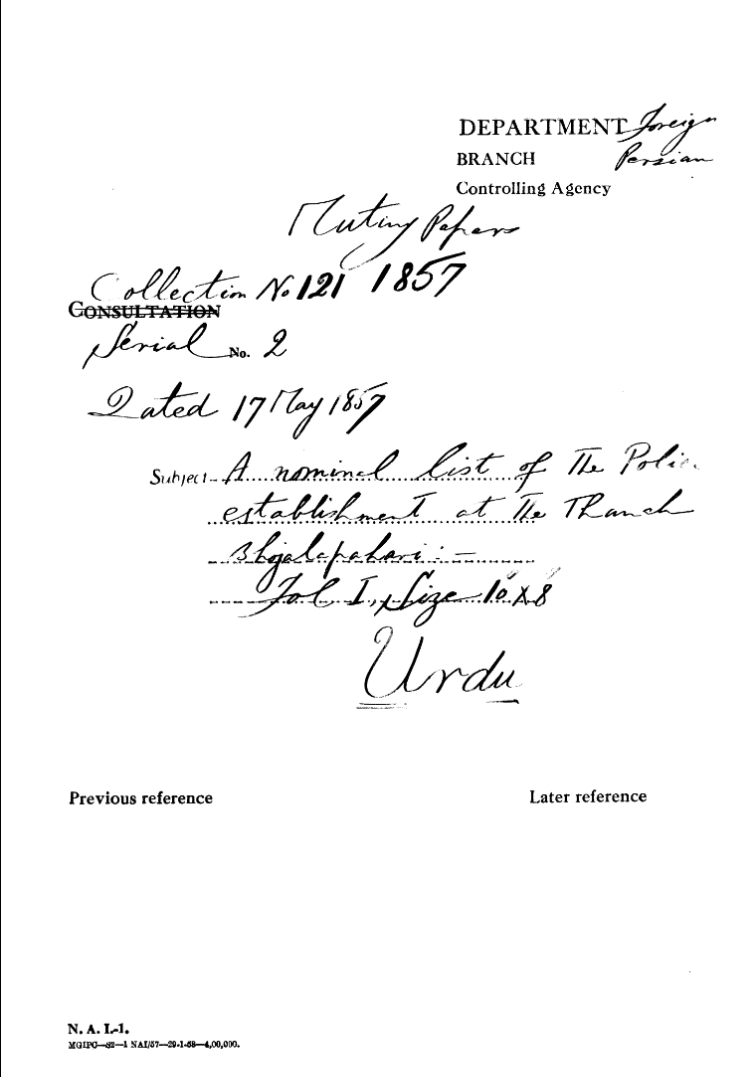 DEPARTMENT Foreign
BRANCH Persian
Controlling Agency
Mutiny Papers
Collection No 121 1857
CONSULTATION
Serial No. 2
Dated 17 May 1857
Subject A nominal list of the Police
establishment at the Thanah
Bhojalapahari :-
Fol I, Size 10 X 8
Urdu
Previous reference
Later reference
N. A. I.-1.
MGIPC—S2—1 NAI/57—29-1-58—4,00,000.